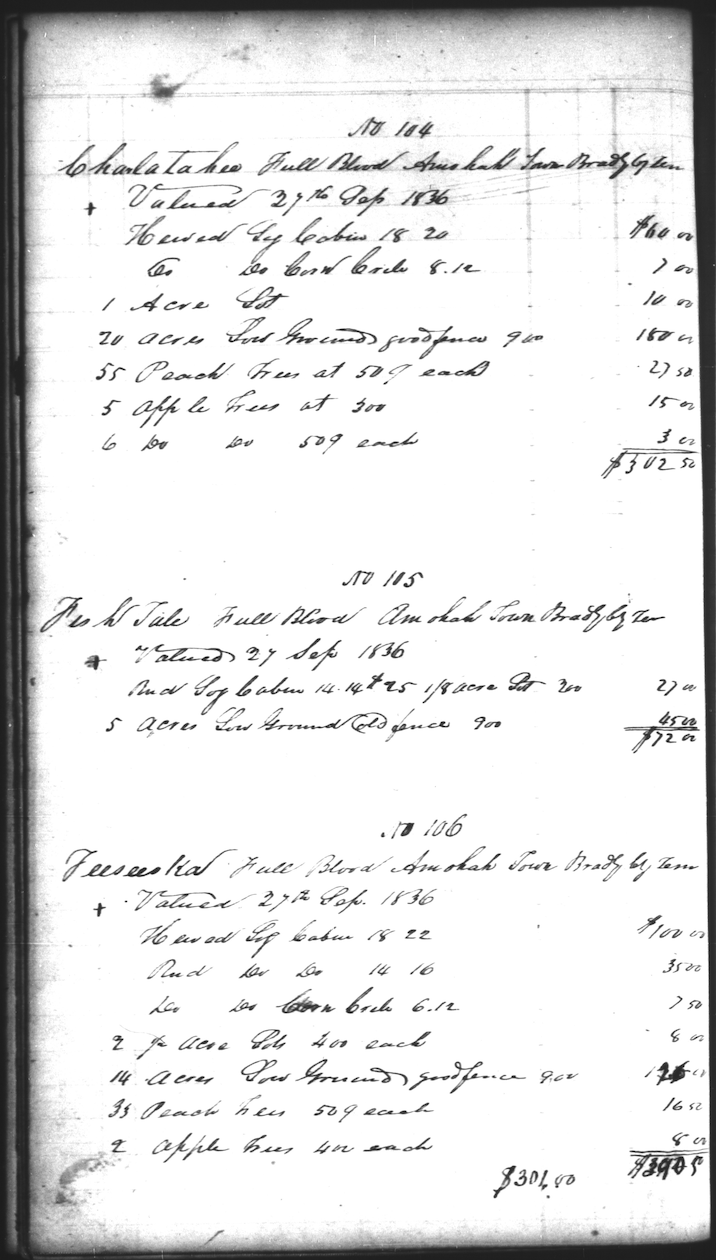 No 104
Charlatahee Full Blood Amohah Town Bradly Cty Ten
+ Valued 27th Sep 1836
Hewed Log Cabin 18 20 $60 00
Do Do Corn Crib 8.12 7 00
1 Acre Lot 10 00
20 acres Low Ground good fence 9 00 180 00
55 Peach Trees at 50¢ each 27 50
5 apple Trees at 300 15 00
6 Do Do 50¢ each 3 00
$302 50
No 105
Fish Tale Full Blood Amohah Town Bradly Cty Ten
+ Valued 27 Sep 1836
Rnd Log Cabin 14.14 25 1/8 acre Lot 200 27 00
5 Acres Low Ground Old fence 900 45 00
$72 00
No 106
Teeseeska Full Blood Amohah Town Bradly Cty Tenn
+ Valued 27th Sep. 1836
Hewed Log Cabin 18 22 $100 00
Rnd Do Do 14 16 35 00
Do Do Corn Crib 6.12 7 50
2 acre Lots 400 each 8 00
14 Acres Low Ground good fence 9.00 126 00
33 Peach Trees 50¢ each 16 50
2 Apple Trees 400 each 8 00
$301.00